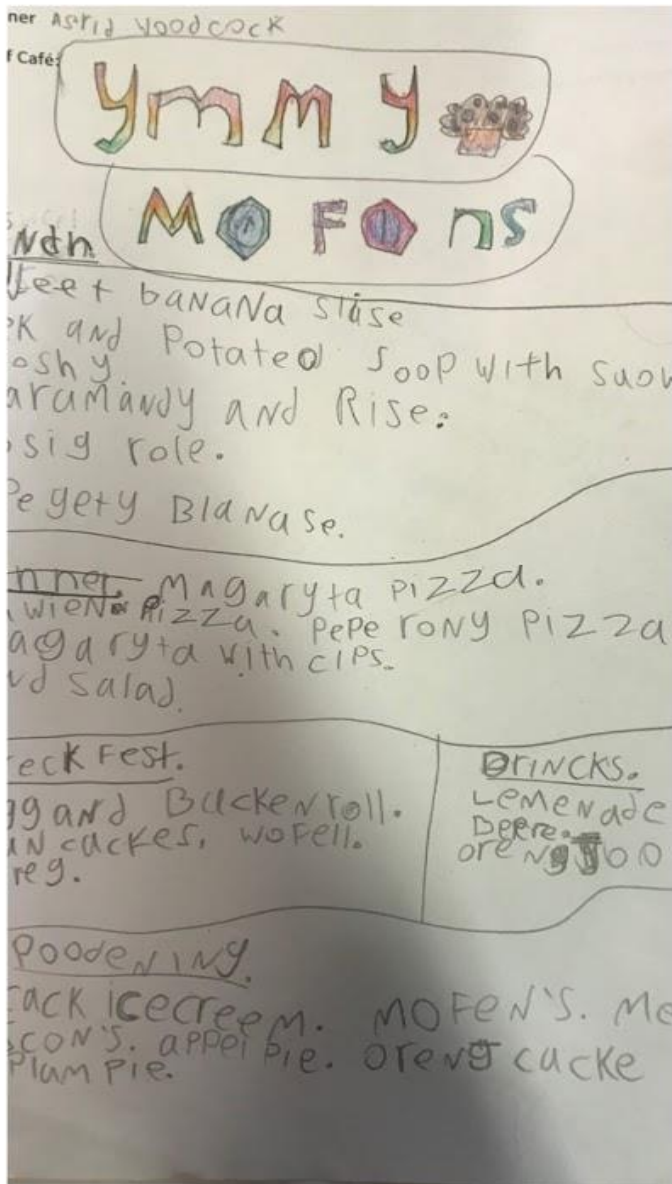 ner Astrid Yoodcock
f Café:
ymmy
MOFOns
Ndh
teet baNaNa stise
ck aNd Potateo SooP with suow
oshy.
aramandy and Rise.
osig role.
Pegety BlaNase.
nner. Magaryta Pizza.
wieN Pizza. PePerony Pizza
agaryta with ciPs.
nd Salad.
eckFest.
gg aNd BackeN roll.
aN cackes, woFell.
reg.
DriNcks.
LemeNade
Beere.
oreNg Joo
PoodeNiNg.
cack icecreem. MOFeN's. Me
scoN's. appel Pie. oreNg cacke
Plam Pie.